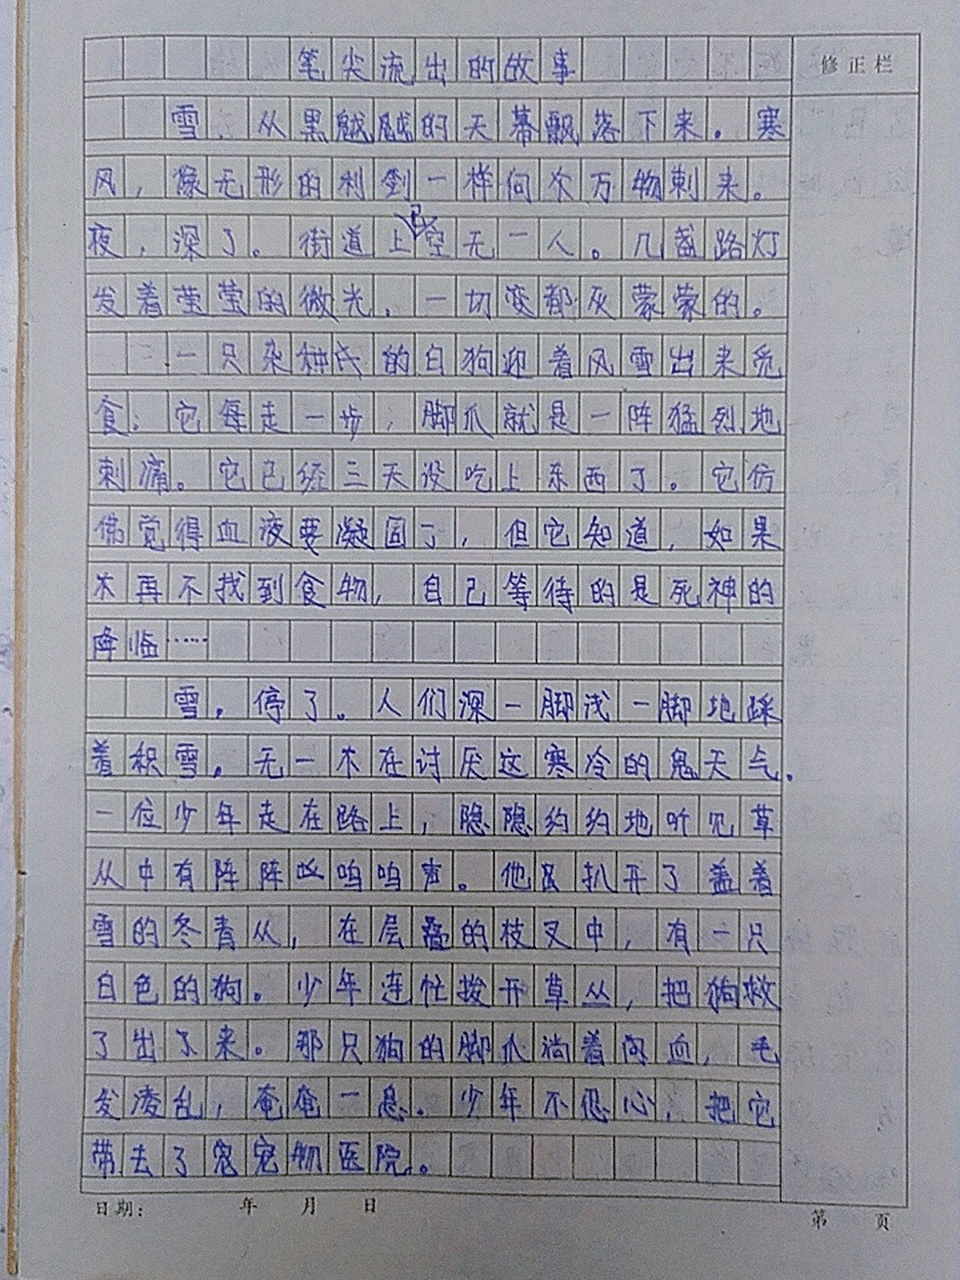 笔尖流出的故事
修正栏
雪,从黑越越的天幕飘落下来。寒
风,像无形的利剑一样向次万物刺来。
夜,深了。街道上已空无一人。几盏路灯
发着莹莹的微光,一切变都灰蒙蒙的。
一只杂种氏的白狗迎着风雪出来觅
食;它每走一步,脚爪就是一阵猛烈地
刺痛。它已经三天没吃上东西了。它仿
佛觉得血液要凝固了,但它知道,如果
不再不找到食物,自己等待的是死神的
降临……
雪,停了。人们深一脚浅一脚地踩
着积雪,无一不在讨厌这寒冷的鬼天气。
一位少年走在路上,隐隐约约地听见草
从中有阵阵呜呜声。他扒开了盖着
雪的冬青从,在层叠的枝叉中,有一只
白色的狗。少年连忙拨开草丛,把狗救
了出了来。那只狗的脚爪淌着血,毛
发凌乱,奄奄一息。少年不忍心,把它
带去了宠物医院。
日期: 年 月 日
第 页